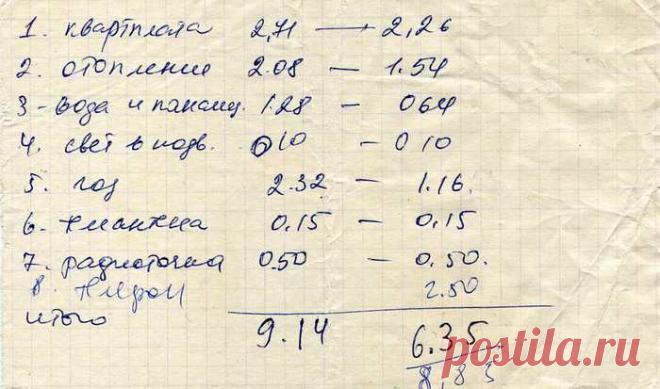 1. квартплата 2,71 → 2,26
2. отопление 2.08 — 1.54
3 - вода и канализ. 1.28 — 064
4. свет в подв. 010 — 010
5. газ 2.32 — 1.16.
6 - 0.15 — 0.15
7. радиоточка 0.50 — 0.50.
8. 2.50
итого 9.14 6.35
8,85
postila.ru